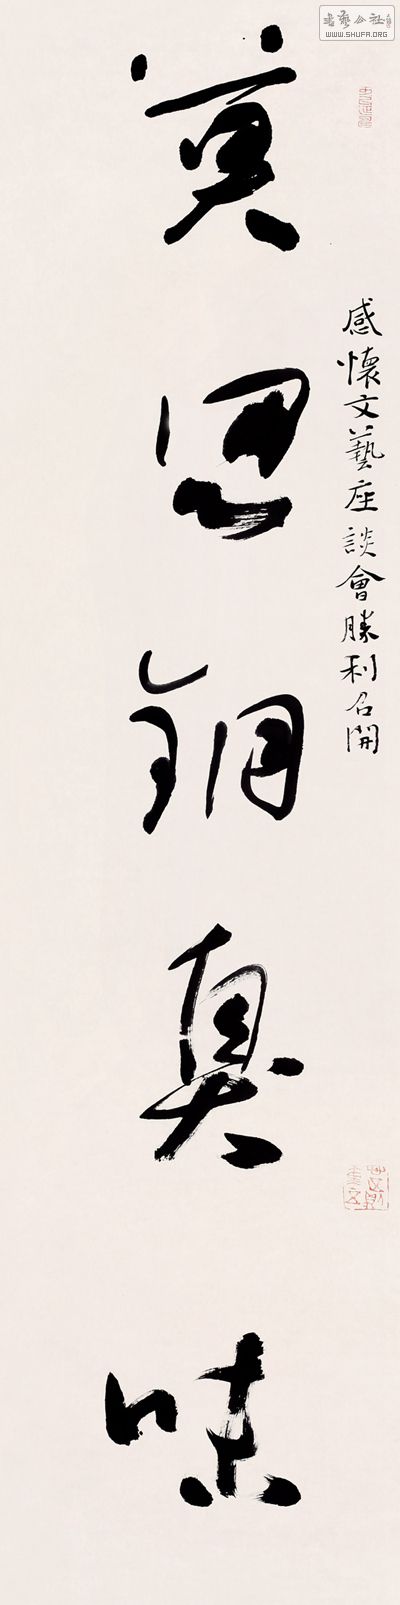 莫思銅臭味
感懷文藝座談會勝利召開
書藝公社
WWW.SHUFA.ORG